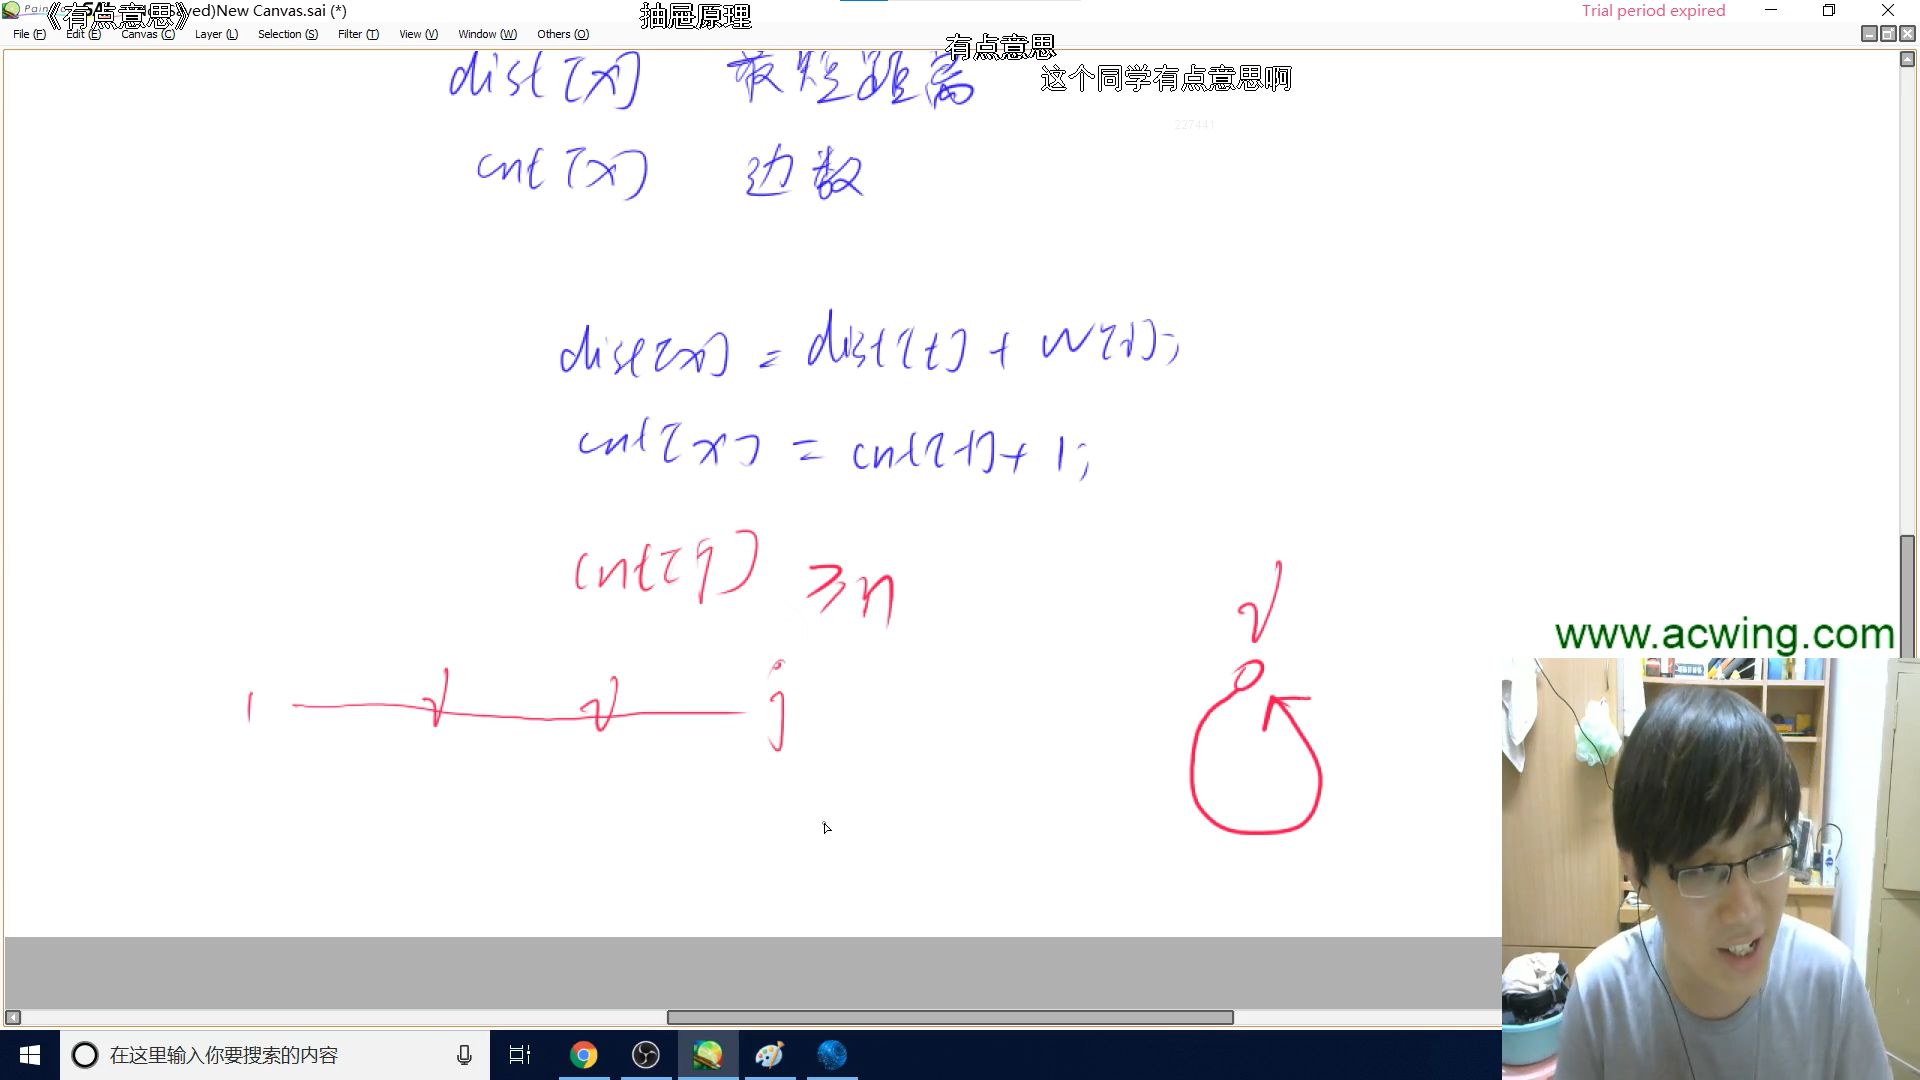 《有点意思》
抽屉原理
New Canvas.sai (*)
Trial period expired
File (F) Edit (E) Canvas (C) Layer (L) Selection (S) Filter (T) View (V) Window (W) Others (O)
有点意思
这个同学有点意思啊
227441
dist[x] 最短距离
cnt[x] 边数
dist[x] = dist[t] + w[i];
cnt[x] = cnt[t] + 1;
cnt[j] ≥ n
1 v v j
v
www.acwing.com
在这里输入你要搜索的内容